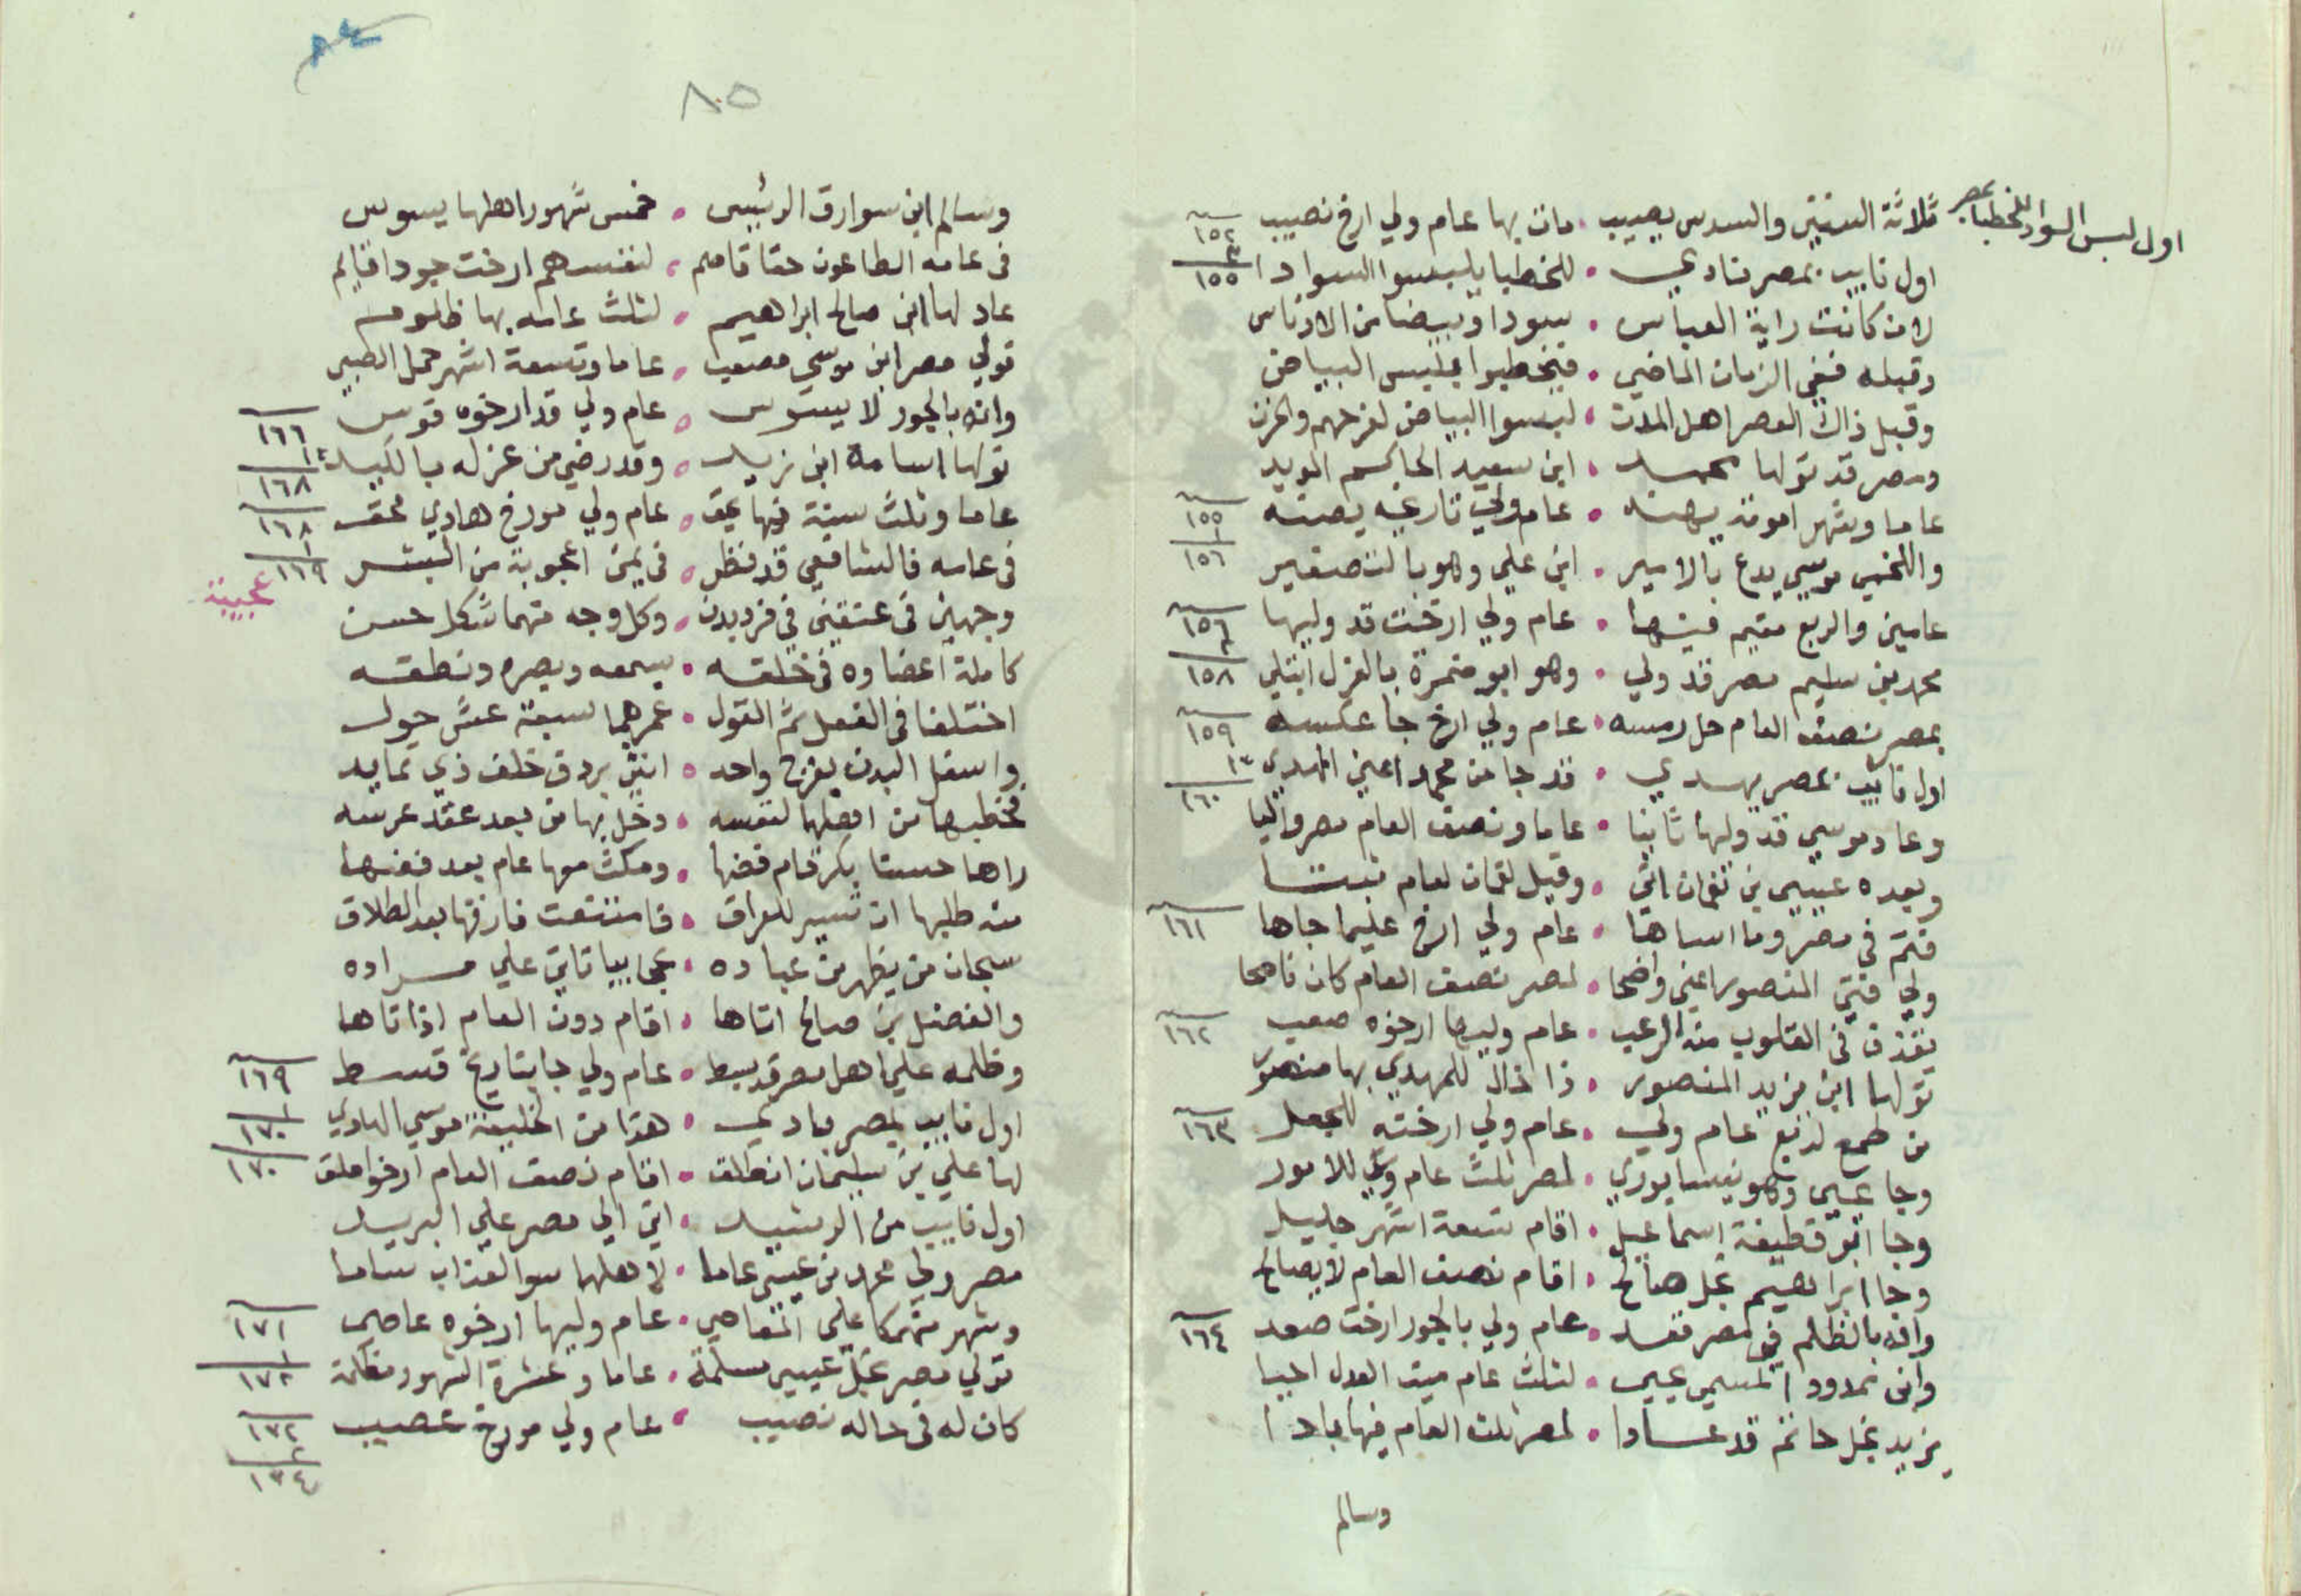 اول لبس السواد للخطبا بمصر
ثلاثة السنين والسدس يصيب • مات بها عام ولي ارخ نصيب ١٥٢
اول نايب بمصر نادي • للخطبا يلبسوا السوادا ٣ ١٥٥
لان كانت راية العباس • سودا وبيضا من الادناس
وقبله ففي الزمان الماضي • فيخطبوا بلبس البياض
وقبل ذاك العصر اهل المدن • لبسوا البياض لفرحهم والحزن
ومصر قد تولها محمد • ابن سعيد الحاكم المويد
عاما وشهر امونه يهنه • عام ولي تاريخه يصنه ١٥٥
واللخمي موسي يدع بالامير • ابن علي وهو بالتصغير ١ ١٥٦
عامين والربع مقيم فيها • عام ولي ارخت قد وليها ١٥٦
محمد بن سليم مصر قد ولي • وهو ابو ضمرة بالعزل ابتلي ٢ ١٥٨
بمصر نصف العام حل رمسه • عام ولي ارخ جا عكسه ١٥٩
اول نايب بمصر يهدي • قد جا من محمد اعني المهدي ١٦٠
وعاد موسي قد ولها ثانيا • عاما ونصف العام مصر واليا
وبعده عيسي بن لقمان اتي • وقيل لقمان لعام ثبتا
فتم في مصر وما اساها • عام ولي ارخ عليما جاها ١٦١
ولي فتي المنصور اعني واضحا • لمصر نصف العام كان ناصحا
يقذف في القلوب منه الرعب • عام وليها ارخوه صعب ١٦٢
تولها ابن يزيد المنصور • ذا خال للمهدي بها منصور
من طمع لربع عام ولي • عام ولي ارخته للجمل ١٦٣
وجا يحيي وهو نيسابوري • لمصر ثلث عام ولي للامور
وجا ابو قطيفة اسماعيل • اقام تسعة اشهر جليل
وجا ابراهيم نجل صالح • اقام نصف العام لا يصالح
وانه بالظلم في مصر قعد • عام ولي بالجور ارخت صعد ١٦٤
وابن ممدود المسمي يحيي • لثلث عام ميت العدل احيا
يزيد نجل حاتم قد عادا • لمصر ثلث العام فيها بادا
وسالم
٨٥
وسالم ابن سوارق الرئيس • خمس شهور اهلها يسوس
في عامه الطاعون حقا قاصم • لنفسهم ارخت جودا قايم
عاد لها ابن صالح ابراهيم • لثلث عامه بها ظلوم
تولي مصر ابن موسي مصعب • عاما وتسعة اشهر حمل الطبي
وانه بالجور لا يسوس • عام ولي قد ارخوه قوس ١٦٦
تولها اسامة ابن زيد • وقد رضي من عزله بالكيد ١٦٨
عاما وثلث سنة فيها يحق • عام ولي مورخ هادي محق ١٦٨
في عامه فالشافعي قد نظر • في يمن اعجوبة من البشر ١ ١٦٩
عجيبة
وجهين في عنقين في فرد بدن • وكل وجه منهما شكل حسن
كاملة اعضاوه في خلقه • سمعه وبصره ونطقه
اختلفا في الفعل ثم القول • عمرهما سبعة عشر حول
واسفل البدن بفرج واحد • انثي بردف خلف ذي تمايد
فخطبها من اهلها لنفسه • دخل بها من بعد عقد عرسه
راها حسنا بكر قام فضها • ومكث معها عام بعد فضها
منه طلبها ان تسير للعراق • فامتنعت فارقها بعد الطلاق
سبحان من يظهر من عباده • عجايبا تاتي علي مراده
والفضل بن صالح اتاها • اقام دون العام اذ اتاها
وظلمه علي اهل مصر قد بسط • عام ولي جا بتاريخ قسط ١٦٩
اول نايب لمصر بادي • هذا من الخليفة موسي الهادي ١ ١٧٠
لها علي بن سليمان انطلق • اقام نصف العام ارخوا ملق ١٧٠
اول نايب من الرشيد • اتي الي مصر علي البريد
مصر ولي محمد بن عيسي عاما • لاهلها سوا العذاب ساما
وشهر منهمكا علي المعاصي • عام وليها ارخوه عاصي ١٧١
تولي مصر نجل عيسي مسلمة • عاما وعشرة الشهور مظلمة ١ ١٧٢
كان له في حاله نصيب • عام ولي مورخ عصيب ١٧٢
٢ ١٧٤